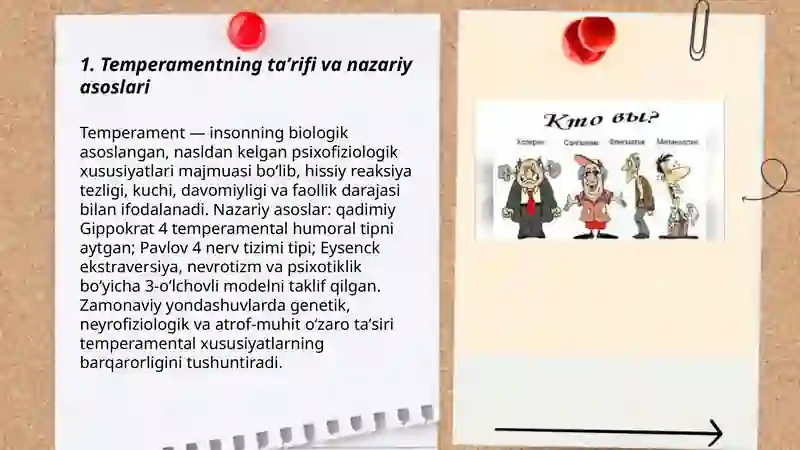 1. Temperamentning ta’rifi va nazariy
asoslari
Temperament — insonning biologik
asoslangan, nasldan kelgan psixofiziologik
xususiyatlari majmuasi bo‘lib, hissiy reaksiya
tezligi, kuchi, davomiyligi va faollik darajasi
bilan ifodalanadi. Nazariy asoslar: qadimiy
Gippokrat 4 temperamental humoral tipni
aytgan; Pavlov 4 nerv tizimi tipi; Eysenck
ekstraversiya, nevrotizm va psixotiklik
bo‘yicha 3-o‘lchovli modelni taklif qilgan.
Zamonaviy yondashuvlarda genetik,
neyrofiziologik va atrof-muhit o‘zaro ta’siri
temperamental xususiyatlarning
barqarorligini tushuntiradi.
Кто вы?
Холерик Сангвиник Флегматик Меланхолик